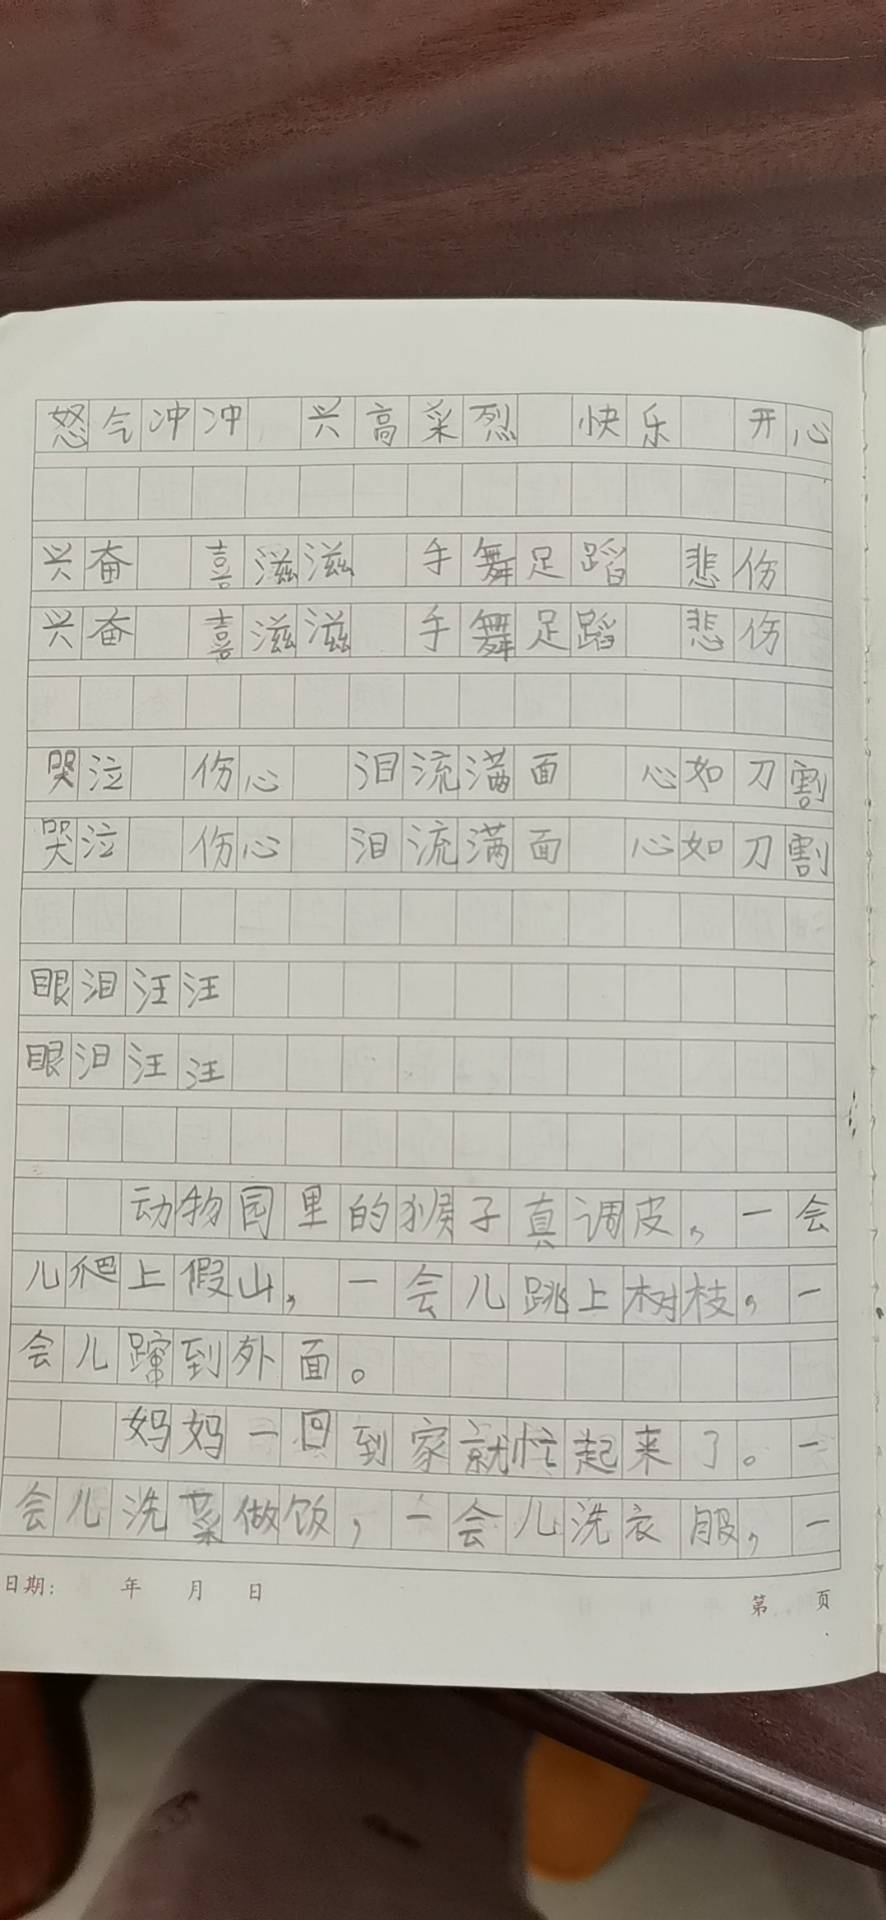 怒气冲冲 兴高采烈 快乐 开心
兴奋 喜滋滋 手舞足蹈 悲伤
兴奋 喜滋滋 手舞足蹈 悲伤
哭泣 伤心 泪流满面 心如刀割
哭泣 伤心 泪流满面 心如刀割
眼泪汪汪
眼泪汪汪
动物园里的猴子真调皮,一会
儿爬上假山,一会儿跳上树枝,一
会儿蹿到外面。
妈妈一回到家就忙起来了。一
会儿洗菜做饭,一会儿洗衣服,一
日期: 年 月 日 第 页